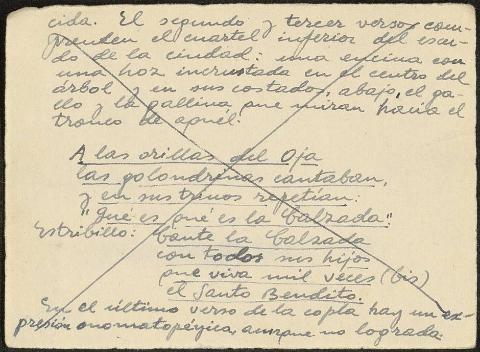 cida. El segundo y tercer versos com-
prenden el cuartel inferior del escu-
do de la ciudad: una encina con
una hoz incrustada en el centro del
árbol y en sus costados, abajo, el ga-
llo y la gallina que miran hacia el
tronco de aquél:
A las orillas del Oja
las golondrinas cantaban,
y en sus trinos repetían:
"Qué es, qué es la Calzada".
Estribillo: Cante la Calzada
con todos sus hijos
que viva mil veces (bis)
el Santo Bendito.
En el último verso de la copla hay un ex-
presión onomatopéyica, aunque no lograda.